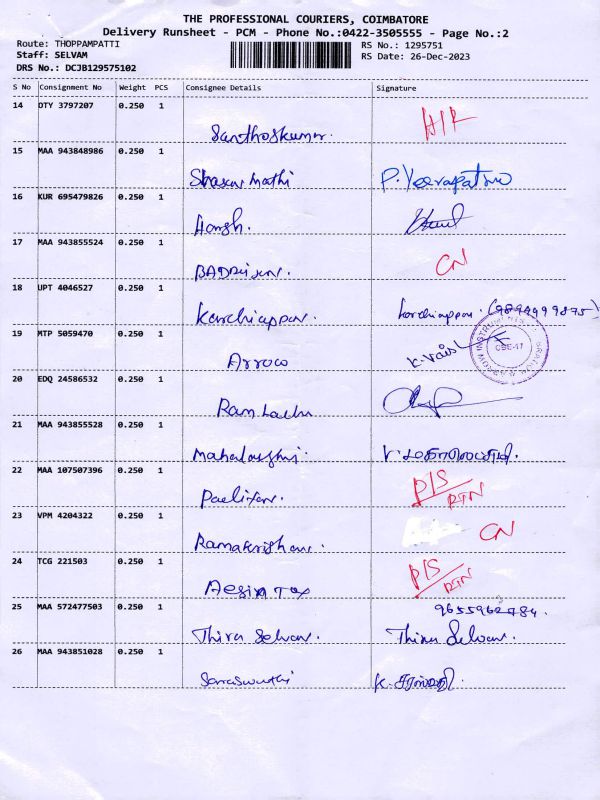 THE PROFESSIONAL COURIERS, COIMBATORE
Delivery Runsheet - PCM - Phone No.:0422-3505555 - Page No.:2
Route: THOPPAMPATTI
Staff: SELVAM
DRS No.: DCJB129575102
RS No.: 1295751
RS Date: 26-Dec-2023
S No Consignment No Weight PCS Consignee Details Signature
14 DTY 3797207 0.250 1
Santhoskumar.
15 MAA 943848986 0.250 1
16 KUR 695479826 0.250 1
17 MAA 943855524 0.250 1
CN
18 UPT 4046527 0.250 1
Karchiappan. karchiappan.
19 MTP 5059470 0.250 1
Arroco
20 EDQ 24586532 0.250 1
21 MAA 943855528 0.250 1
22 MAA 107507396 0.250 1
D/S
RTN
23 VPM 4204322 0.250 1
Ramakrishnan. CN
24 TCG 221503 0.250 1
D/S
RTN
25 MAA 572477503 0.250 1
Thiru Selvan. Thiru Selvan.
26 MAA 943851028 0.250 1
Saraswathi